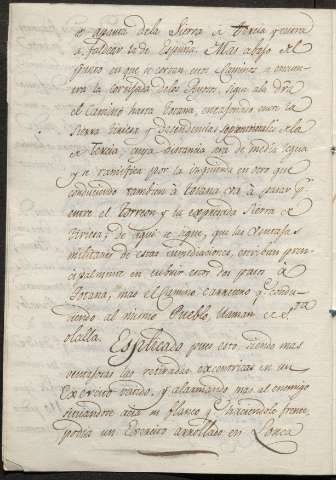 de la Sierra de Tercia y
a faldear la de Espuña. Mas abajo del
punto en que se cortan estos Caminos se encuen-
tra la Corralada de los sigue a la dra
el Camino hasta Totana, encajonado entre la
Sierra y dependencias Septentrionales de la
de Tercia; cuya distancia será de media legua
y se ramifica por la izquierda en otro que
conduciendo tambien à Totana vá à pasar pr
entre el Torreon y la expresada Sierra de
de aqui se sigue, que las Ventajas
militares de estas inmediaciones, estriban prin-
cipalmente en cubrir estos dos pasos de
Totana, mas el Camino carretero qe condu-
ciendo al mismo Pueblo, llaman de Sta
olalla. Esplicado pues esto, siendo mas
ventajosas las retiradas excentricas en un
Exercito batido, y alarmando mas al enemigo
situandose acia su flanco qe haciendole frente,
podia un Exercito arrollado en Lorca